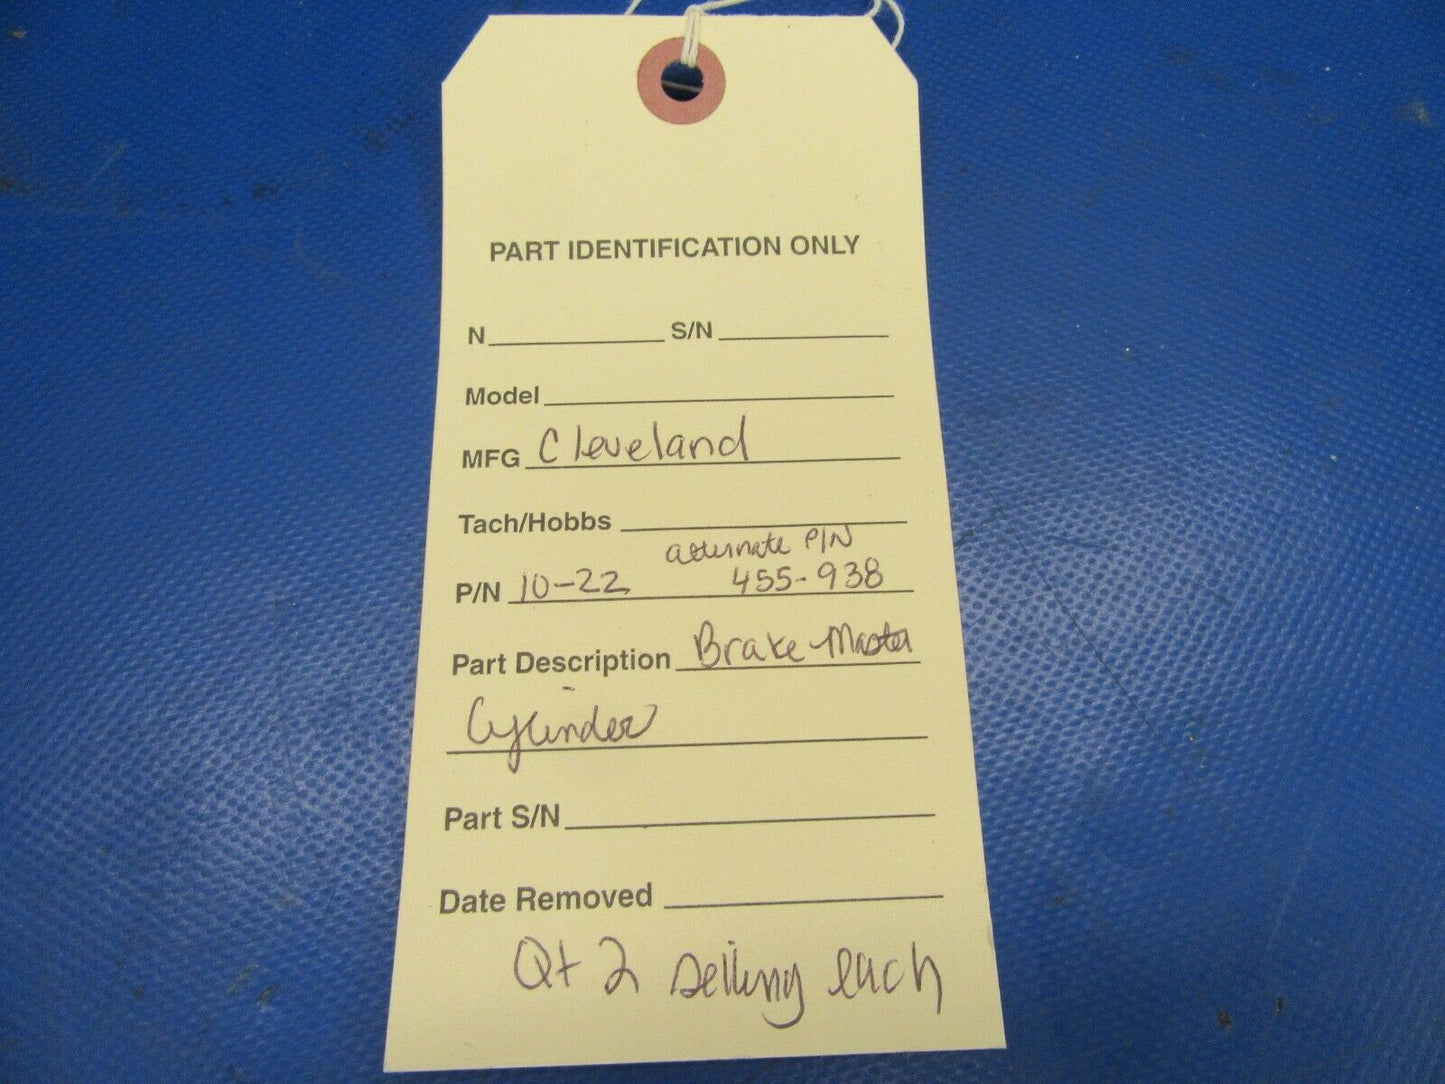 PART IDENTIFICATION ONLY
N__________ S/N__________
Model__________
MFG Cleveland
Tach/Hobbs__________
alternate P/N
P/N 10-22 455-938
Part Description Brake Master
Cylinder
Part S/N__________
Date Removed__________
Qt 2 selling each